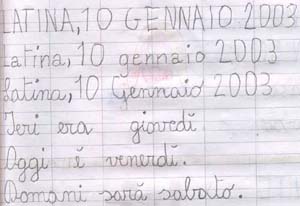 LATINA, 10 GENNAIO 2003
Latina, 10 gennaio 2003
Latina, 10 Gennaio 2003
Ieri era giovedì
Oggi è venerdì.
Domani sarà sabato.